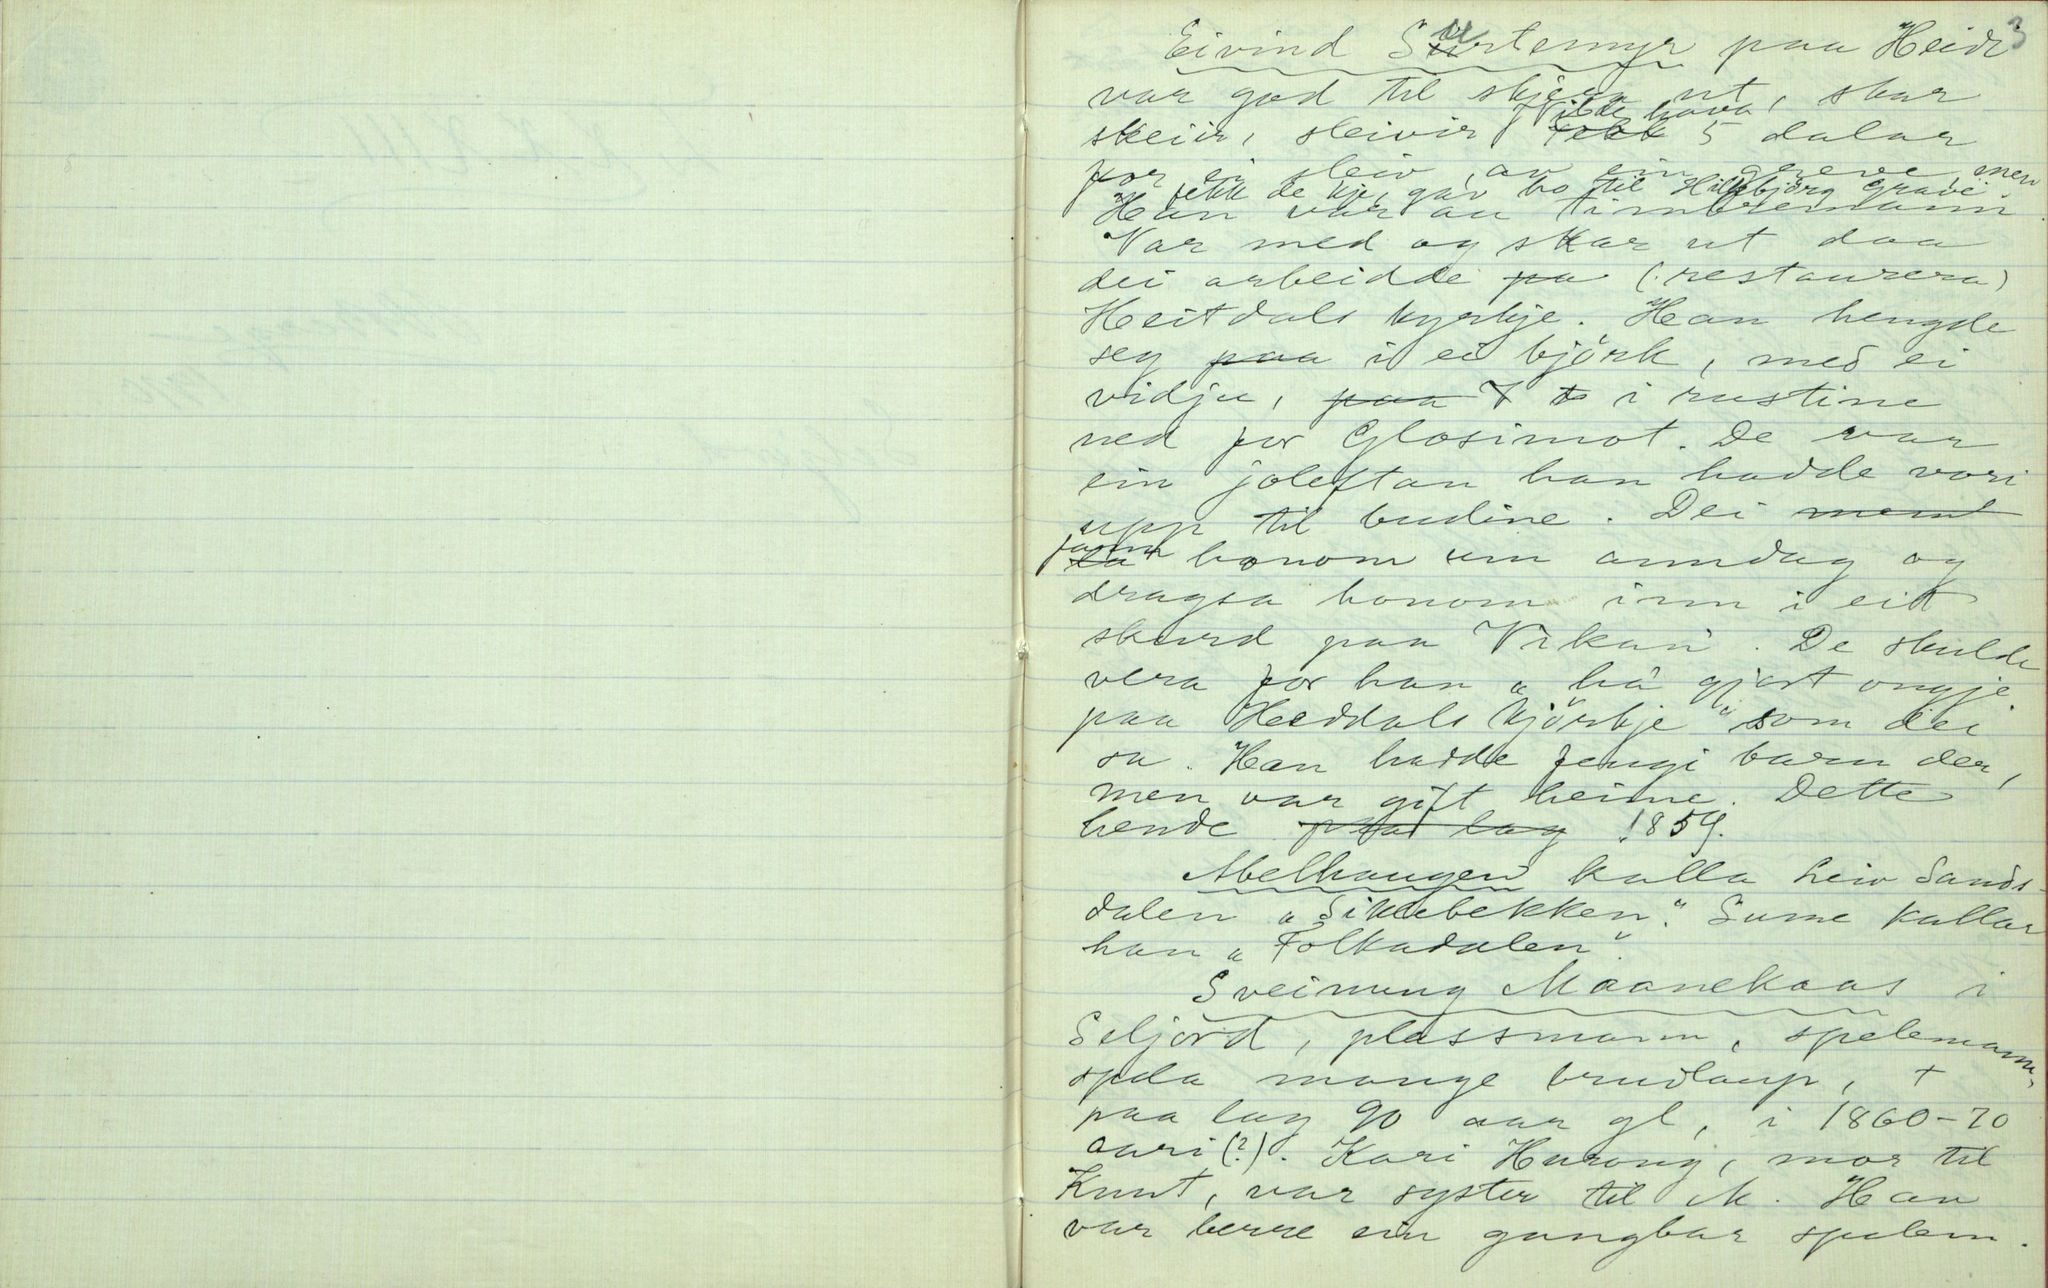 3
Eivind Surtemyr paa Heidi
var god til skjera ut, skar
skeiir, sleivir Vilde hava 5 dalar
for ei sleiv av ein greve, men
fekk de kje, gav ho til Hilbjörg Gravé
Han var au timbremann
Var med og skar ut daa
dei arbeidde pa (restaurera)
Heitdals kyrkje. Han hengde
seg paa i ei björk, med ei
vidju, paa i rustine
ned for Glosimot. De var
ein joleftan han hadde vori
upp til budine. Dei
fann honom um anndag og
dragsa honom inn i eit
skurd paa Vikan. De skulde
vera for han „ha gjort ongje
paa Heddals kjörkje" som dei
sa. Han hadde fengi barn der,
men var gift heime. Dette
hende paa lag 1859.
Abelhaugen kalla Leiv Sands-
dalen „Sikkebekken". Sume kallar
han „Folkadalen".
Sveinung Maanekaas i
Seljord, plassmann, spelemann,
spela mange brudlaup, +
paa lag 90 aar gl, i 1860-70
aari (?). Kari Hurong, mor til
Knut, var syster til M. Han
var berre ein gangbar spelem.